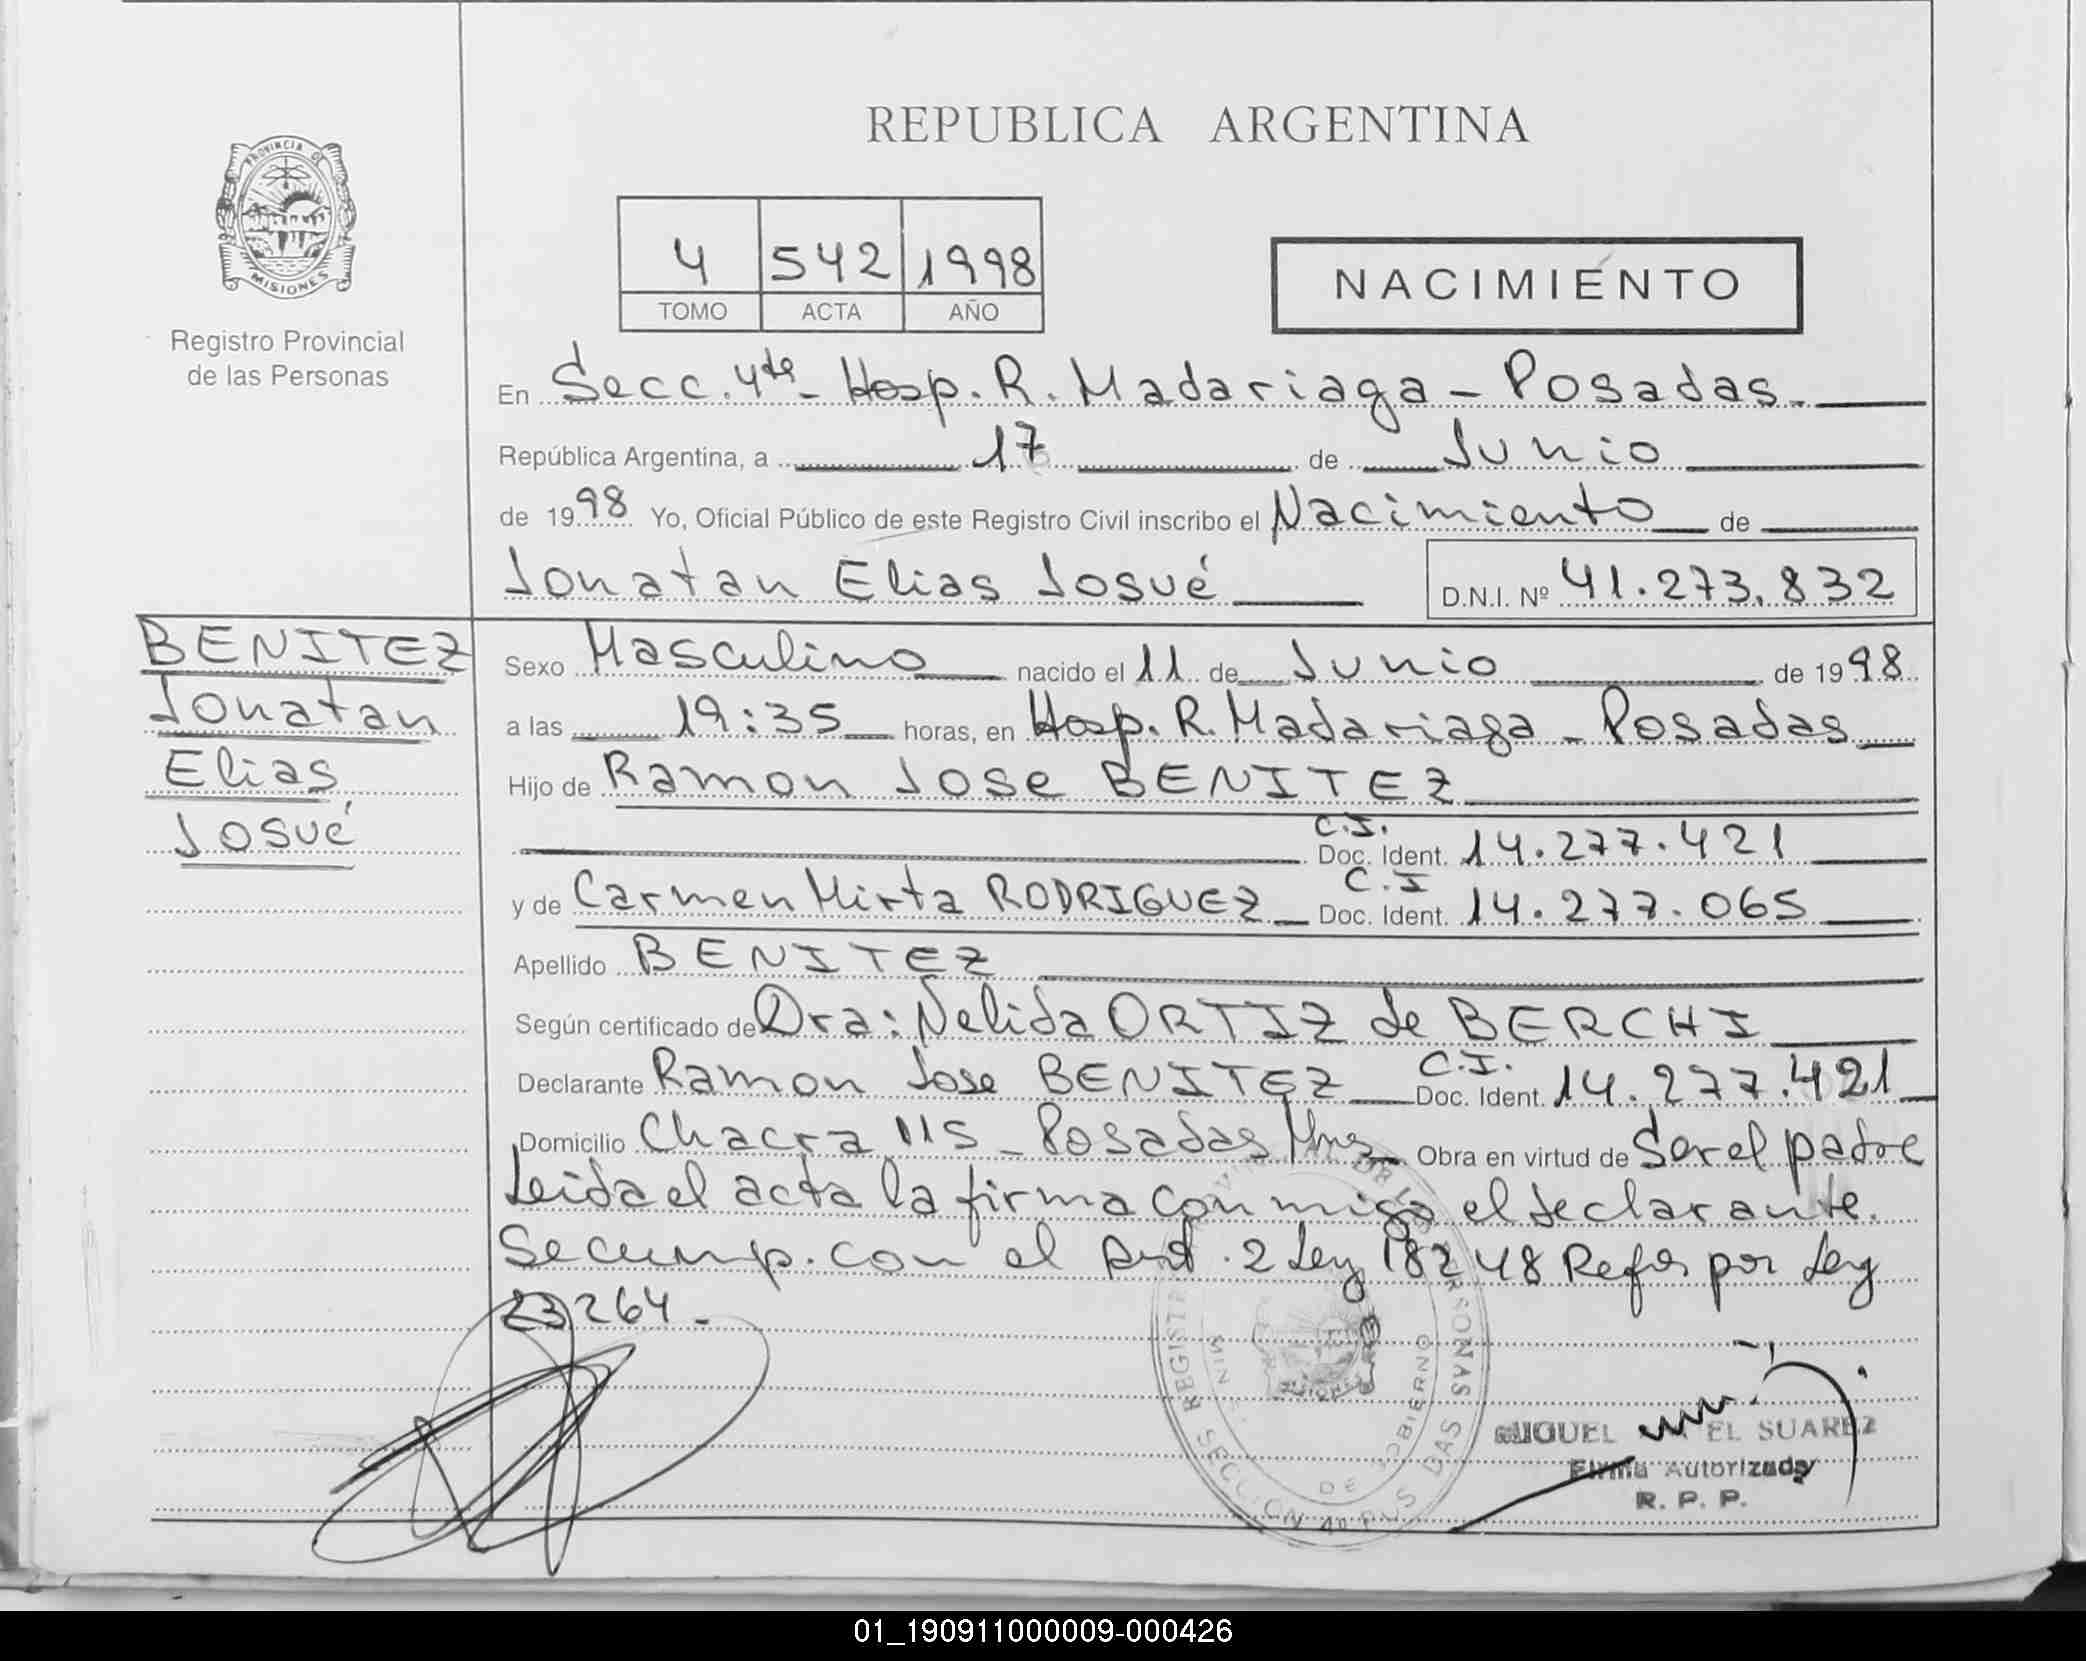 REPUBLICA ARGENTINA
PROVINCIA DE
MISIONES
Registro Provincial
de las Personas
4 542 1998
TOMO ACTA AÑO
NACIMIENTO
En Secc. 4ta - Hosp. R. Madariaga - Posadas.
República Argentina, a 17 de Junio
de 1998 Yo, Oficial Público de este Registro Civil inscribo el Nacimiento de
Jonatan Elias Josué D.N.I. Nº 41.273.832
BENITEZ
Jonatan
Elias
Josué
Sexo Masculino nacido el 11 de Junio de 1998
a las 19:35 horas, en Hosp. R. Madariaga - Posadas
Hijo de Ramon Jose BENITEZ
C.I.
Doc. Ident. 14.277.421
y de Carmen Mirta RODRIGUEZ C.I Doc. Ident. 14.277.065
Apellido BENITEZ
Según certificado de Dra: Nelida ORTIZ de BERCHI
Declarante Ramon Jose BENITEZ C.I. Doc. Ident. 14.277.421
Domicilio Chacra 115 - Posadas Mnes Obra en virtud de Ser el padre
Leida el acta la firma conmigo el declarante.
Se cump. con el Art. 2 Ley 18248 Refor por Ley
23264.
SECCION 4a
DE GOBIERNO
MIGUEL EL SUAREZ
Firma Autorizada
R. P. P.
01_190911000009-000426